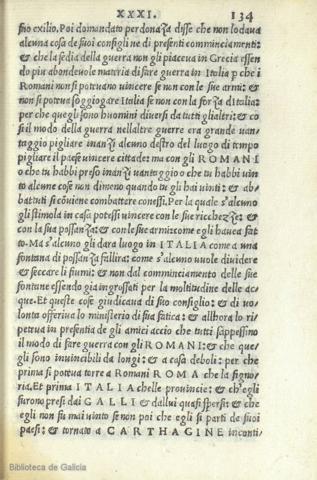 XXXI. 134
suo exilio. Poi domandato perdonaza disse che non lodaua
alcuna cosa de suoi consigli ne di presenti comminciamenti:
& che la sedia della guerra non gli piaceua in Grecia essen
do piu abondeuole materia di fare guerra in Italia p che i
Romani non si potriano uincere se non con le sue armi: &
non si potria soggiogare Italia se non con la forza d Italia:
per che quegli sono huomini diuersi da tutti gli altri: & co
si il modo della guerra nell altre guerre era grande uan-
taggio pigliare inanzi alcuno destro del luogo di tempo
pigliare il paese uincere cittade: ma con gli ROMANI
o che tu habbi preso inanzi uantaggio o che tu habbi uin
to alcune cose non dimeno quando tu gli hai uinti: & ab-
battuti si cõuiene combattere con essi. Per la quale s'alcuno
gli stimola in casa potessi uincere con le sue ricchezze: &
con la sua possanza: & con le sue armi: come egli hauea fat
to. Ma s'alcuno gli dara luogo in ITALIA come a una
fontana di possanza fallira: come s'alcuno uuole diuidere
& seccare li fiumi: & non dal comminciamento delle sue
fontane essendo gia ingrossati per la moltitudine delle ac
que. Et queste cose giudicaua di suo consiglio: & di uo-
lonta offeriua lo ministerio di sua fatica: & allhora lo ri-
petrua in presentia de gli amici accio che tutti sappessino
il modo di fare guerra con gli ROMANI: & che que-
gli sono inuincibili da longi: & a casa deboli: per che
prima si potrua torre a Romani ROMA che la signo-
ria. Et prima ITALIA chelle prouincie: & ch'egli
furono presi dai GALLI & dallui quasi spersi: & che
egli non fu mai uinto se non poi che egli si parti de suoi
paesi: & tornato a CARTHAGINE inconti
Biblioteca de Galicia